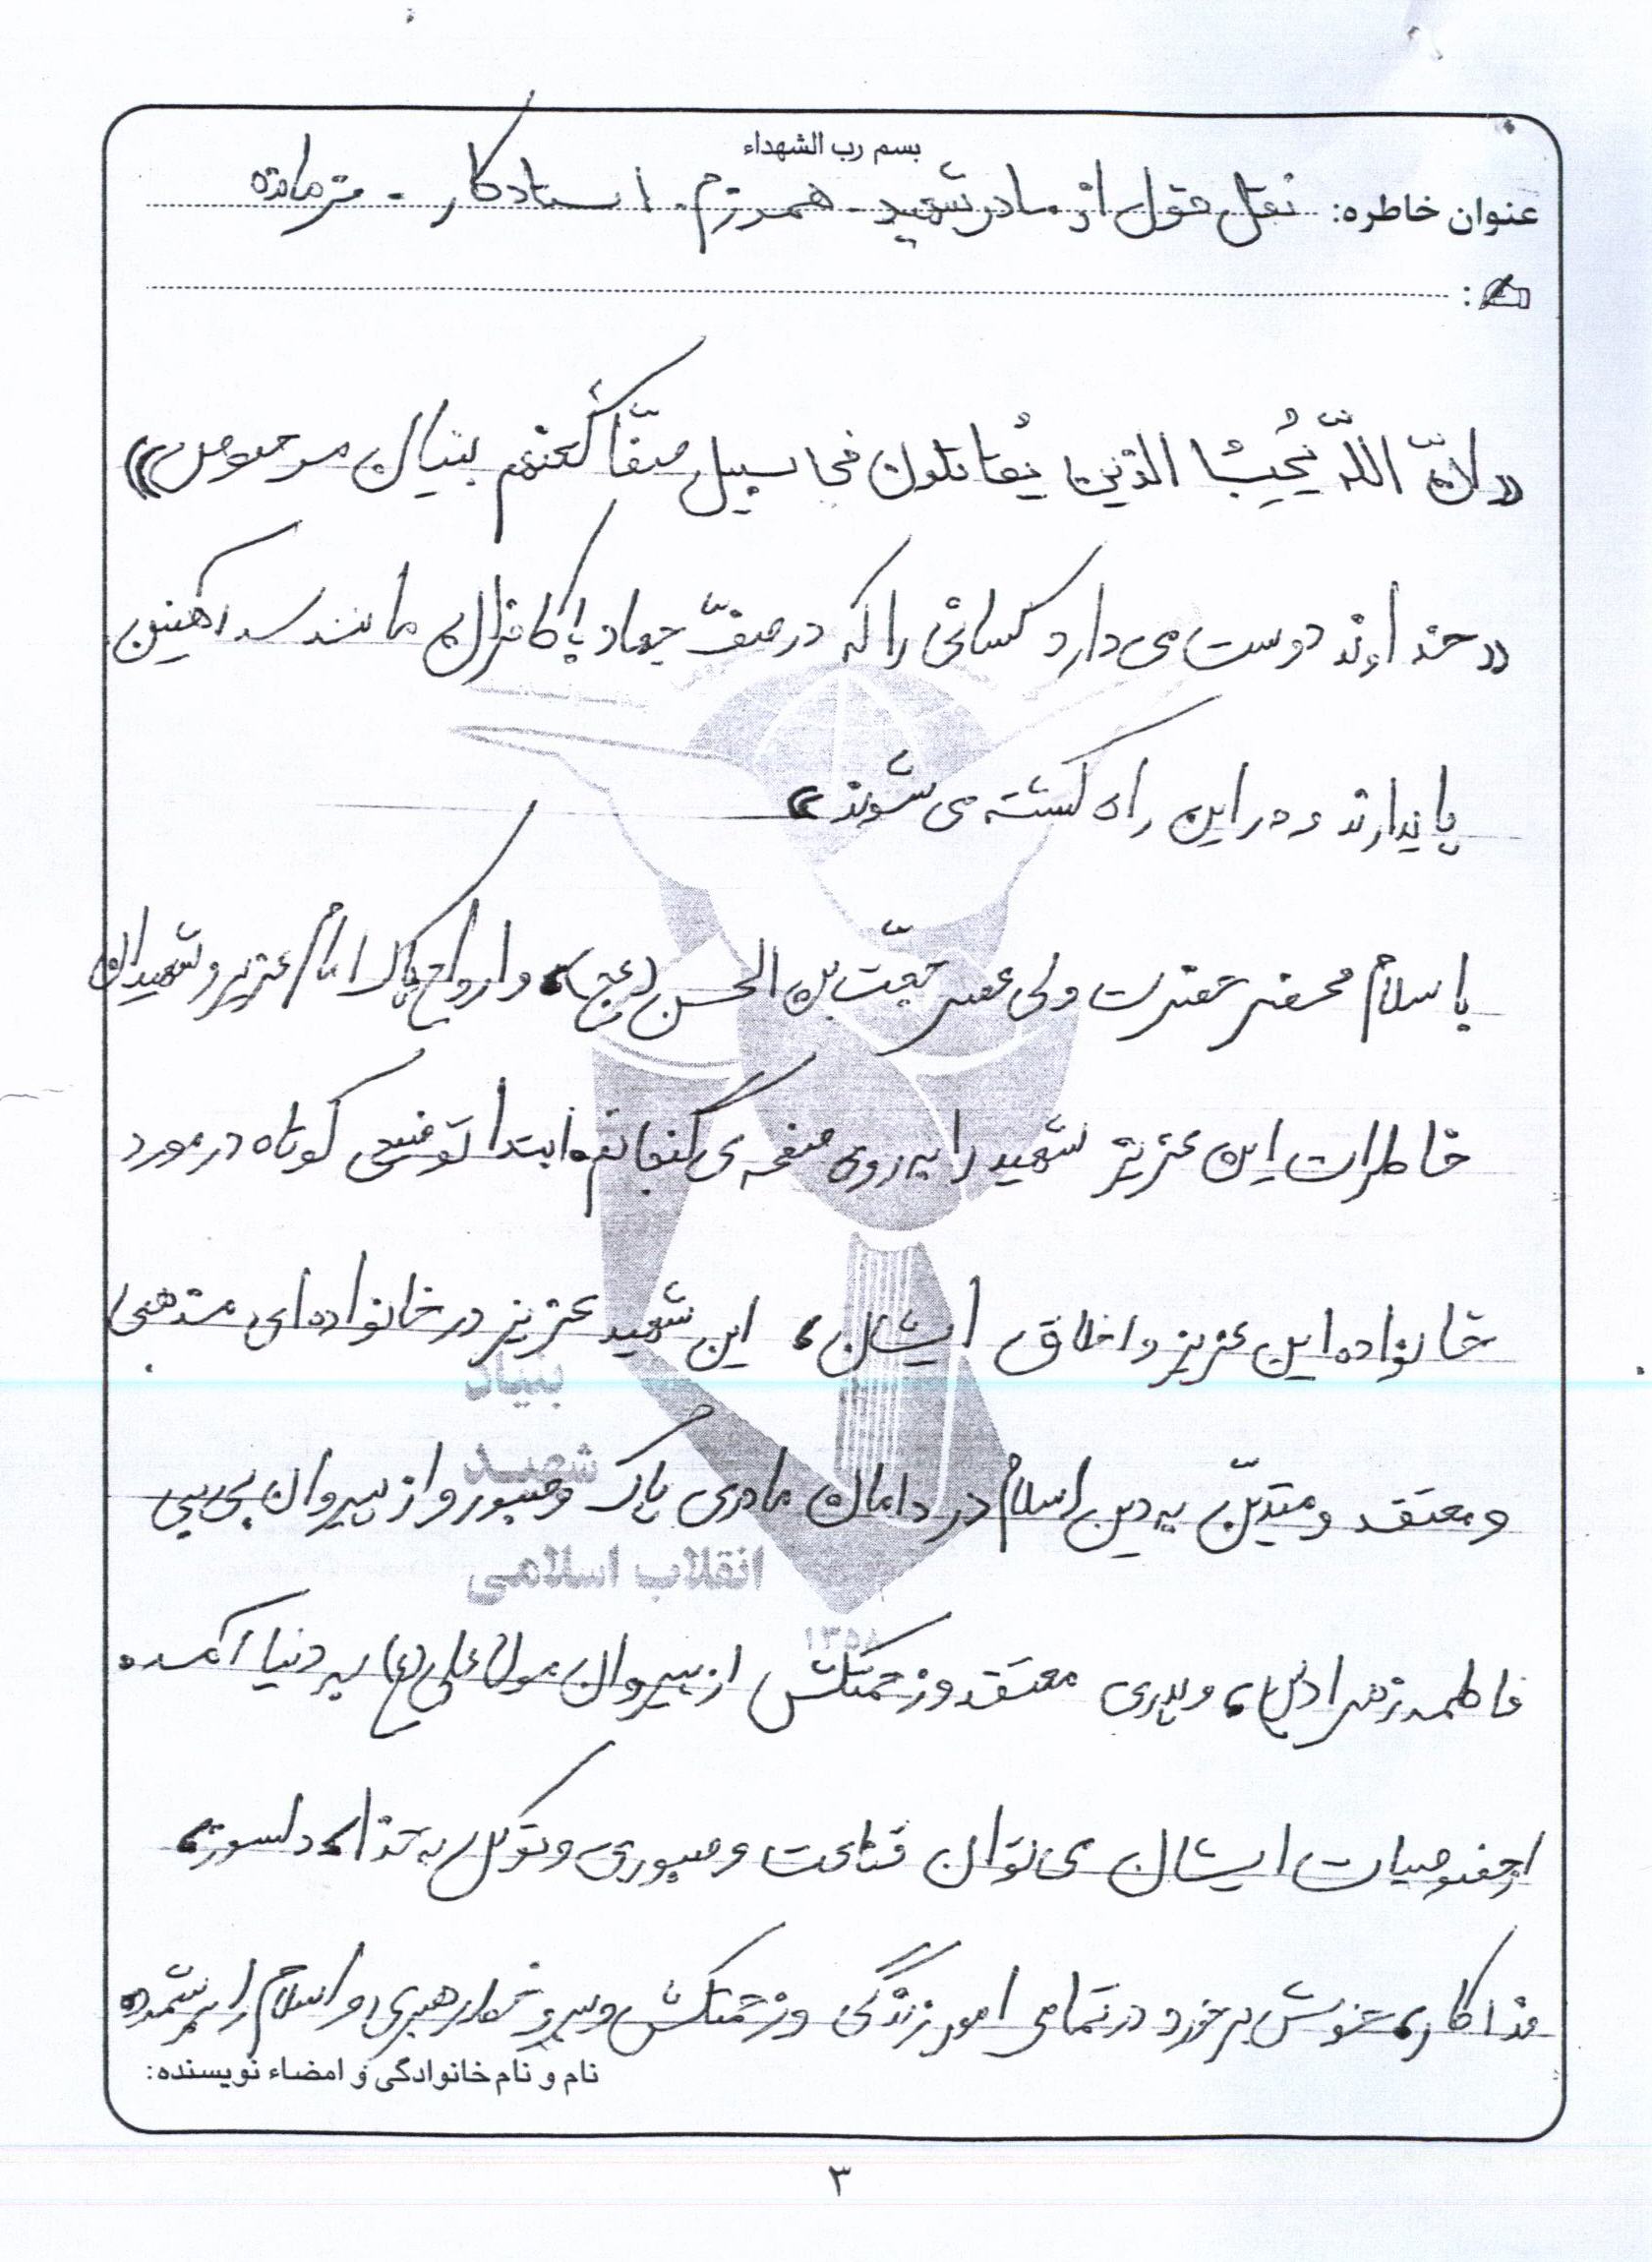 بسم رب الشهداء
عنوان خاطره: نقل قول از مادر شهید - همرزم - استادکار - فرمانده
:
«انّ اللّه یُحِبُّ الذین یُقاتلون فی سبیل صفّاً کَعنهم بنیان مرصوص»
«خداوند دوست می دارد کسانی را که در صفّ جهاد با کافران مانند سد آهنین
پایدارند و در این راه کشته می شوند»
با سلام محضر حضرت ولی عصر حجّت بن الحسن (عج)، و ارواح پاک امام عزیز و شهیدان
خاطرات این عزیز شهید را به روی صفحه ی گنجانم، ابتدا توضیحی کوتاه در مورد
خانواده این عزیز و اخلاق ایشان، این شهید عزیز در خانواده ای مذهبی
و معتقد و متدیّن به دین اسلام در دامان مادری پاک و صبور و از پیروان بی بی
فاطمه زهرا (س)، و پدری معتقد و زحمتکش از پیروان مولا علی (ع) به دنیا آمده.
از خصوصیات ایشان می توان قناعت و صبوری و توکل به خدا، دلسوز،
فداکار، خوش برخورد در تمامی امور زندگی و زحمتکش و پیرو خط رهبری و اسلام را بر شمرده
نام و نام خانوادگی و امضاء نویسنده:
۳
بنیاد
شهید
انقلاب اسلامی
۱۳۵۸